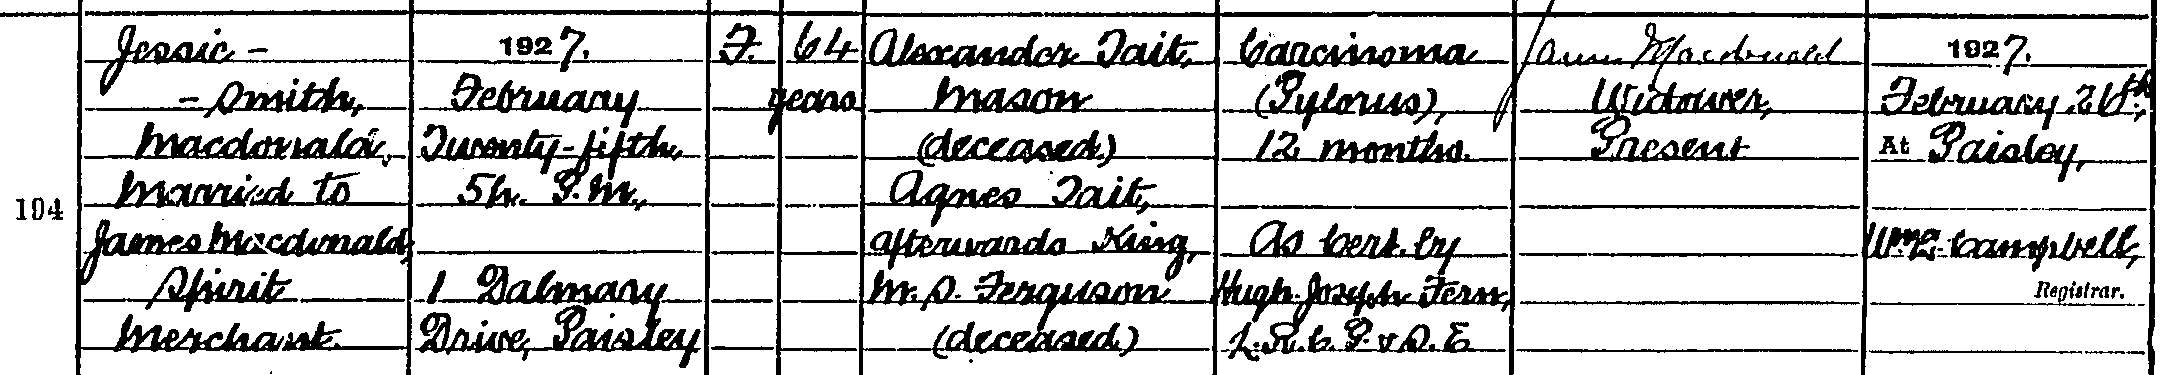 104
Jessie -
- Smith,
Macdonald.
Married to
James Macdonald,
Spirit
Merchant.
1927.
February
Twenty-fifth,
5h. P.M.,
1 Dalmary
Drive, Paisley
F.
64
years
Alexander Tait,
Mason
(deceased)
Agnes Tait,
afterwards King,
M.S. Ferguson
(deceased)
Carcinoma
(Pylorus),
12 months.
As Cert. by
Hugh Joseph Fern,
L.R.C.P. & S.E
James Macdonald
Widower,
Present
1927.
February 26th,
At Paisley,
Wm. Campbell,
Registrar.